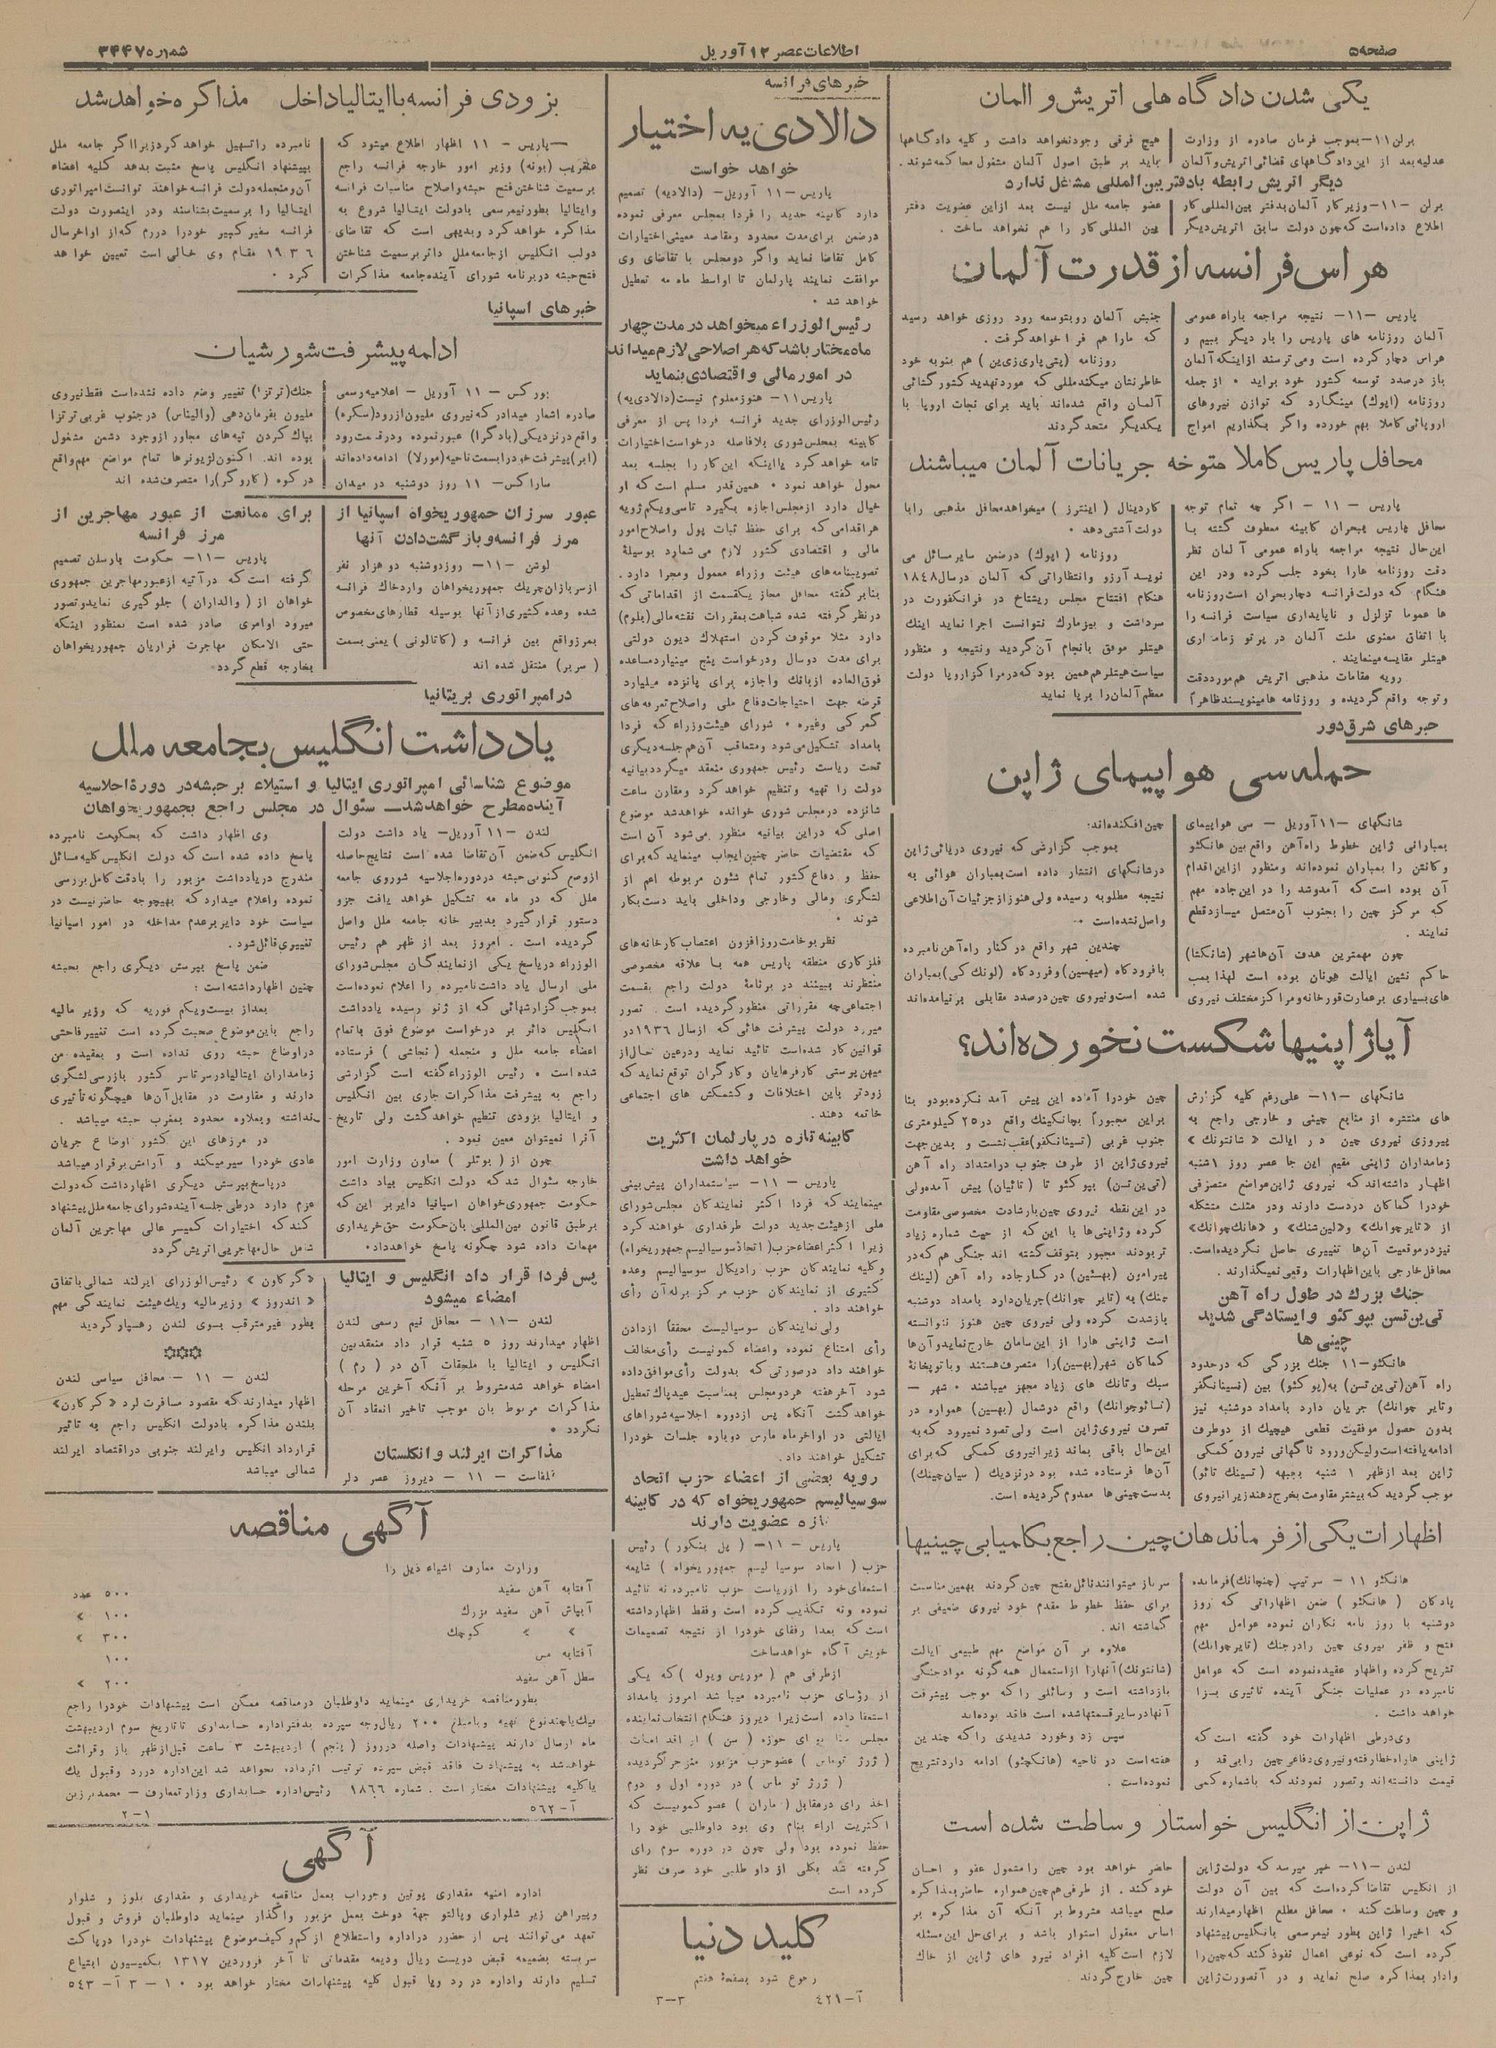 صفحه ۵
اطلاعات عصر ۱۲ آوریل
شماره ۳۴۴۷
یکی شدن دادگاه های اتریش و المان
برلن ۱۱- بموجب فرمان صادره از وزارت
عدلیه بعد از این دادگاههای قضائی اتریش و آلمان
هیچ فرقی وجود نخواهد داشت و کلیه دادگاهها
باید بر طبق اصول آلمان مشغول محاکمه شوند.
دیگر اتریش رابطه با دفتر بین المللی مشغل ندارد
برلن -۱۱- وزیر کار آلمان بدفتر بین المللی کار
اطلاع داده است که چون دولت سابق اتریش دیگر
عضو جامعه ملل نیست بعد از این عضویت دفتر
بین المللی کار را هم نخواهد ساخت.
هراس فرانسه از قدرت آلمان
پاریس -۱۱- نتیجه مراجعه باراء عمومی
آلمان روزنامه های پاریس را بار دیگر ببیم و
هراس دچار کرده است ومی ترسند از اینکه آلمان
باز درصدد توسعه کشور خود براید . از جمله
روزنامه (اپوك) مینگارد که توازن نیروهای
اروپائی کاملا بهم خورده واگر بگذاریم امواج
جنبش آلمان رو بتوسعه رود روزی خواهد رسید
که مارا هم فرا خواهد گرفت.
روزنامه (پتی پاریزین) هم بنوبه خود
خاطر نشان میکند مللی که مورد تهدید کشور گشائی
آلمان واقع شده اند باید برای نجات اروپا با
یکدیگر متحد گردند
محافل پاریس کاملا متوجه جریانات آلمان میباشند
پاریس - ۱۱ - اگر چه تمام توجه
محافل پاریس ببحران کابینه معطوف گشته با
این حال نتیجه مراجعه باراء عمومی آلمان نظر
دقت روزنامه هارا بخود جلب کرده ودر این
هنگام که دولت فرانسه دچار بحران است روزنامه
ها عموما تزلزل و ناپایداری سیاست فرانسه را
با اتفاق معنوی ملت آلمان در پرتو زمامداری
هیتلر مقایسه مینمایند.
رویه مقامات مذهبی اتریش هم مورد دقت
و توجه واقع گردیده و روزنامه ها مینویسند ظاهراً
کاردینال (اینترز) میخواهد محافل مذهبی را با
دولت آشتی دهد .
روزنامه (اپوك) در ضمن سایر مسائل می
نویسد آرزو وانتظاراتی که آلمان در سال ۱۸۴۸
هنگام افتتاح مجلس ریشتاخ در فرانکفورت در
سرداشت و بیزمارك نتوانست اجرا نماید اینك
هیتلر موفق بانجام آن گردید و نتیجه و منظور
سیاست هیتلر هم همین بود که در مرکز اروپا دولت
معظم آلمان را برپا نماید
خبرهای شرق دور
حمله سی هواپیمای ژاپن
شانگهای -۱۱ آوریل - سی هواپیمای
بمبارانی ژاپن خطوط راه آهن واقع بین هانکئو
وکانتن را بمباران نموده اند ومنظور از این اقدام
آن بوده است که آمدوشد را در این جاده مهم
که مرکز چین را بجنوب آن متصل میسازد قطع
نمایند .
چون مهمترین هدف آن ها شهر (شانکشا)
حاکم نشین ایالت هونان بوده است لهذا بمب
های بسیاری بر عمارت قورخانه و مراکز مختلف نیروی
چین افکنده اند؛
بموجب گزارشی که نیروی دریائی ژاپن
در شانگهای انتشار داده است بمباران هوائی به
نتیجه مطلوبه رسیده ولی هنوز از جزئیات آن اطلاعی
واصل نشده است .
چندین شهر واقع در کنار راه آهن نامبرده
با فرودگاه (میهسین) و فرودگاه (لونك کی) بمباران
شده است و نیروی چین در صدد مقابلی برنیامده اند
آیا ژاپنیها شکست نخورده اند؟
شانگهای -۱۱- علی رغم کلیه گزارش
های منتشره از منابع چینی و خارجی راجع به
پیروزی نیروی چین در ایالت «شانتونك»
زمامداران ژاپنی مقیم این جا عصر روز ۱شنبه
اظهار داشته اند که نیروی ژاپن مواضع متصرفی
خودرا کماکان در دست دارند ودر مثلث متشکله
از «تایر چوانك» و «لین شنك» و «هانك چوانك»
نیز در موقعیت آن ها تغییری حاصل نگردیده است.
محافل خارجی باین اظهارات وقعی نمیگذارند .
جنك بزرك در طول راه آهن
تی ین تسن بپوکئو وایستادگی شدید
چینی ها
هانکئو-۱۱ جنك بزرگی که در حدود
راه آهن (تی ین تسن) به (پوکئو) بین (تسینانگفر
و تایر چوانك) جریان دارد بامداد دوشنبه نیز
بدون حصول موفقیت قطعی هیچیك از دو طرف
ادامه یافته است ولیکن ورود ناگهانی نیرون کمکی
ژاپن بعد از ظهر ۱ شنبه بجبهه (تسینك تائو)
موجب گردید که بیشتر مقاومت بخرج دهند زیرا نیروی
چین خودرا آماده این پیش آمد نکرده بودو بنا
براین مجبوراً بچانکینك واقع در ۲۵ کیلومتری
جنوب غربی (تسینانکفو) عقب نشست و بدین جهت
نیروی ژاپن از طرف جنوب در امتداد راه آهن
(تی ین تسن) بپوکئو تا (تائیان) پیش آمده ولی
در این نقطه نیروی چین بارشادت مخصوصی مقاومت
کرده وژاپنی ها با این که از حیث شماره زیاد
تر بودند مجبور بتوقف گشته اند جنگی هم که در
پیرامون (بهسین) در کنار جاده راه آهن (لینك
چنك) به (تایر چوانك) جریان دارد بامداد دوشنبه
بازشدت کرده ولی نیروی چین هنوز نتوانسته
است ژاپنی هارا از این سامان خارج نماید و آن ها
کماکان شهر (بهسین) را متصرف هستند وبا توپخانهٔ
سبك وتانك های زیاد مجهز میباشند . شهر -
(تسائوچوانك) واقع در شمال (بهسین) همواره در
تصرف نیروی ژاپن است ولی تصور نمیرود که به
این حال باقی بماند زیرا نیروی کمکی که برای
آن ها فرستاده شده بود در نزدیك (سیان چینك)
بدست چینی ها معدوم گردیده است.
اظهارات یکی از فرماندهان چین راجع بکامیابی چینیها
هانکئو ۱۱ - سرتیپ (چنچانك) فرمانده
پادگان (هانکئو) ضمن اظهاراتی که روز
دوشنبه با روز نامه نگاران نموده عوامل مهم
فتح و ظفر نیروی چین را در جنك (تایر چوانك)
تشریح کرده واظهار عقیده نموده است که عوامل
نامبرده در عملیات جنگی آینده تاثیری بسزا
خواهد داشت .
وی در طی اظهارات خود گفته است که
ژاپنی ها راه خطا رفته و نیروی دفاعی چین را بی قدر و
قیمت دانسته اند و تصور نمودند که با شماره کمی
سرباز میتوانند نائل بفتح چین گردند بهمین مناسبت
برای حفظ خطوط مقدم خود نیروی ضعیفی بر
گماشته اند.
علاوه بر آن مواضع مهم طبیعی ایالت
(شانتونك) آنهارا از استعمال همه گونه مواد جنگی
بازداشته است و وسائلی را که موجب پیشرفت
آنها در سایر قسمتها شده است فاقد بوده اند
سپس زد وخورد شدیدی را که چندین
هفته است دو ناحیه (هانکچئو) ادامه دارد تشریح
نموده است.
ژاپن از انگلیس خواستار وساطت شده است
لندن -۱۱- خبر میرسد که دولت ژاپن
از انگلیس تقاضا کرده است که بین آن دولت
و چین وساطت کند . محافل مطلع اظهار میدارند
که اخیرا ژاپن بطور نیمرسمی بانگلیس پیشنهاد
کرده است که نوعی اعمال نفوذ کند که چین را
وادار بمذاکره صلح نماید و در آنصورت ژاپن
حاضر خواهد بود چین را مشمول عفو و احسان
خود کند . از طرفی هم چین همواره حاضر بمذاکره
صلح میباشد مشروط بر آنکه آن مذاکره بر
اساس معقول استوار باشد و برای حل این مسئله
لازم است کلیه افراد نیرو های ژاپن از خاك
چین خارج گردند.
خبرهای فرانسه
دالادی یه اختیار
خواهد خواست
پاریس -۱۱ آوریل- (دالادیه) تصمیم
دارد کابینه جدید را فردا بمجلس معرفی نموده
در ضمن برای مدت محدود ومقاصد معینی اختیارات
کامل تقاضا نماید واگر دو مجلس با تقاضای وی
موافقت نمایند پارلمان تا اواسط ماه مه تعطیل
خواهد شد .
رئیس الوزراء میخواهد در مدت چهار
ماه مختار باشد که هر اصلاحی لازم میداند
در امور مالی و اقتصادی بنماید
پاریس ۱۱- هنوز معلوم نیست (دالادی یه)
رئیس الوزرای جدید فرانسه فردا پس از معرفی
کابینه بمجلس شوری بلافاصله درخواست اختیارات
تامه خواهد کرد یا اینکه این کار را بجلسه بعد
محول خواهد نمود . همین قدر مسلم است که او
خیال دارد از مجلس اجازه بگیرد تا سی ویکم ژویه
هر اقدامی که برای حفظ ثبات پول واصلاح امور
مالی و اقتصادی کشور لازم می شمارد بوسیلهٔ
تصویبنامه های هیئت وزراء معمول ومجرا دارد.
بنا بر گفته محافل مجاز یکقسمت از اقداماتی که
در نظر گرفته شده شباهت بمقررات نقشه مالی (بلوم)
دارد مثلا موقوف کردن استهلاك دیون دولتی
برای مدت دوسال ودرخواست پنج میلیارد مساعده
فوق العاده از بانك واجازه برای پانزده میلیارد
قرضه جهت احتیاجات دفاع ملی واصلاح تعرفه های
گمرکی وغیره . شورای هیئت وزراء که فردا
بامداد تشکیل می شود ومتعاقب آن هم جلسه دیگری
تحت ریاست رئیس جمهوری منعقد میگردد بیانیه
دولت را تهیه وتنظیم خواهد کرد ومقارن ساعت
شانزده در مجلس شوری خوانده خواهد شد موضوع
اصلی که در این بیانیه منظور می شود آن است
که مقتضیات حاضر چنین ایجاب مینماید که برای
حفظ و دفاع کشور تمام شئون مربوطه اعم از
لشگری ومالی وخارجی وداخلی باید دست بکار
شوند .
نظر بوخامت روزافزون اعتصاب کارخانه های
فلزکاری منطقه پاریس همه با علاقه مخصوصی
منتظرند ببینند در برنامهٔ دولت راجع بقسمت
اجتماعی چه مقرراتی منظور گردیده است . تصور
میرود دولت پیشرفت هائی که از سال ۱۹۳۶ در
قوانین کار شده است تائید نماید ودر عین حال از
میهن پرستی کارفرمایان وکارگران توقع نماید که
زودتر باین اختلافات وکشمکش های اجتماعی
خاتمه دهند.
کابینه تازه در پارلمان اکثریت
خواهد داشت
پاریس -۱۱- سیاستمداران پیش بینی
مینمایند که فردا اکثر نمایندگان مجلس شورای
ملی از هیئت جدید دولت طرفداری خواهند کرد
زیرا اکثر اعضاء حزب (اتحاد سوسیالیسم جمهوریخواه)
وکلیه نمایندگان حزب رادیکال سوسیالیسم وعده
کثیری از نمایندگان حزب مرکز برله آن رأی
خواهند داد.
ولی نمایندگان سوسیالیست محققاً از دادن
رأی امتناع نموده واعضاء کمونیست رأی مخالف
خواهند داد در صورتی که بدولت رأی موافق داده
شود آخر هفته هر دو مجلس بمناسبت عید پاك تعطیل
خواهد گشت آنگاه پس از دوره اجلاسیه شوراهای
ایالتی در اواخر ماه مارس دوباره جلسات خودرا
تشکیل خواهند داد.
رویه بعضی از اعضاء حزب اتحاد
سوسیالیسم جمهوریخواه که در کابینه
تازه عضویت دارند
پاریس -۱۱- (پل بنکور) رئیس
حزب (اتحاد سوسیالیسم جمهوریخواه) شایعه
استعفای خود را از ریاست حزب نامبرده نه تائید
نموده ونه تکذیب کرده است وفقط اظهار داشته
است که بعدا رفقای خودرا از نتیجه تصمیمات
خویش آگاه خواهد ساخت
از طرفی هم (موریس ویوله) که یکی
از رؤسای حزب نامبرده میباشد امروز بامداد
استعفا داده است زیرا دیروز هنگام انتخاب نماینده
(ژرژ توماس) عضو حزب مزبور منزجر گردیده
(ژرژ توماس) در دوره اول و دوم
اخذ رای در مقابل (ماران) عضو کمونیست که
اکثریت اراء بنام وی بود داوطلبی خود را
حفظ نموده بود ولی چون در دوره سوم رای
گرفته شد بکلی از داوطلبی خود صرف نظر
کرده است
کلید دنیا
رجوع شود بصفحهٔ هفتم
آ-۴۲۱
۳-۳
بزودی فرانسه با ایتالیا داخل مذاکره خواهد شد
-پاریس - ۱۱ اظهار اطلاع میشود که
عنقریب (بونه) وزیر امور خارجه فرانسه راجع
برسمیت شناختن فتح حبشه واصلاح مناسبات فرانسه
وایتالیا بطور نیمرسمی با دولت ایتالیا شروع به
مذاکره خواهد کرد وبدیهی است که تقاضای
دولت انگلیس از جامعه ملل دائر برسمیت شناختن
فتح حبشه در برنامه شورای آینده جامعه مذاکرات
نامبرده را تسهیل خواهد کرد زیرا اگر جامعه ملل
بپیشنهاد انگلیس پاسخ مثبت بدهد کلیه اعضاء
آن ومنجمله دولت فرانسه خواهند توانست امپراتوری
ایتالیا را برسمیت بشناسند ودر اینصورت دولت
فرانسه سفیر کبیر خودرا در رم که از اواخر سال
۱۹۳۶ مقام وی خالی است تعیین خواهد
کرد .
خبرهای اسپانیا
ادامه پیشرفت شورشیان
بورکس - ۱۱ آوریل - اعلامیه رسمی
صادره اشعار میدارد که نیروی ملیون از رود (سگره)
واقع در نزدیکی (بادگرا) عبور نموده ودر قسمت رود
(ابر) پیشرفت خود را بسمت ناحیه (مورلا) ادامه داده اند
ساراکس- ۱۱ روز دوشنبه در میدان
جنك (ترتزا) تغییر وضع داده نشده است فقط نیروی
ملیون بفرمان دهی (والیناس) در جنوب غربی ترتزا
بپاك کردن تپه های مجاور از وجود دشمن مشغول
بوده اند. اکنون لژیونرها تمام مواضع مهم واقع
در کوه (کاروگر) را متصرف شده اند
عبور سرزان جمهوریخواه اسپانیا از
مرز فرانسه و بازگشت دادن آنها
لوشن -۱۱- روز دوشنبه دو هزار نفر
از سربازان چریك جمهوریخواهان وارد خاك فرانسه
شده وعده کثیری از آنها بوسیله قطارهای مخصوص
بمرز واقع بین فرانسه و (کاتالونی) یعنی بسمت
(سربر) منتقل شده اند
برای ممانعت از عبور مهاجرین از
مرز فرانسه
پاریس -۱۱- حکومت بارسلن تصمیم
گرفته است که در آتیه از عبور مهاجرین جمهوری
خواهان از (والداران) جلوگیری نماید وتصور
میرود اوامری صادر شده است بمنظور اینکه
حتی الامکان مهاجرت فراریان جمهوریخواهان
بخارجه قطع گردد.
در امپراتوری بریتانیا
یادداشت انگلیس بجامعه ملل
موضوع شناسائی امپراتوری ایتالیا و استیلاء بر حبشه در دورهٔ اجلاسیه
آینده مطرح خواهد شد- سئوال در مجلس راجع بجمهوریخواهان
لندن -۱۱ آوریل- یادداشت دولت
انگلیس که ضمن آن تقاضا شده است نتایج حاصله
از وضع کنونی حبشه در دوره اجلاسیه شوروی جامعه
ملل که در ماه مه تشکیل خواهد یافت جزو
دستور قرار گیرد بدبیر خانه جامعه ملل واصل
گردیده است . امروز بعد از ظهر هم رئیس
الوزراء در پاسخ یکی از نمایندگان مجلس شورای
ملی ارسال یادداشت نامبرده را اعلام نموده است
بموجب گزارشهائی که از ژنو رسیده یادداشت
انگلیس دائر بر درخواست موضوع فوق بتمام
اعضاء جامعه ملل و منجمله (نجاشی) فرستاده
شده است . رئیس الوزراء گفته است گزارشی
راجع به پیشرفت مذاکرات جاری بین انگلیس
و ایتالیا بزودی تنظیم خواهد گشت ولی تاریخ
آنرا نمیتوان معین نمود.
چون از (بوتلر) معاون وزارت امور
خارجه سئوال شد که دولت انگلیس بیاد داشت
حکومت جمهوری خواهان اسپانیا دایر بر این که
بر طبق قانون بین المللی بآن حکومت حق خریداری
مهمات داده شود چگونه پاسخ خواهد داد.
وی اظهار داشت که بحکومت نامبرده
پاسخ داده شده است که دولت انگلیس کلیه مسائل
مندرج در یادداشت مزبور را بادقت کامل بررسی
نموده واعلام میدارد که بهیچوجه حاضر نیست در
سیاست خود دایر بر عدم مداخله در امور اسپانیا
تغییری قائل شود.
ضمن پاسخ بپرسش دیگری راجع بحبشه
چنین اظهار داشته است :
بعد از بیست ویکم فوریه که وزیر مالیه
راجع باین موضوع صحبت کرده است تغییر فاحشی
در اوضاع حبشه روی نداده است و بعقیده من
زمامداران ایتالیا در سرتاسر کشور بازرسی لشگری
دارند و مقاومت در مقابل آن ها هیچگونه تأثیری
نداشته وبعلاوه محدود بمغرب حبشه میباشد .
در مرزهای این کشور اوضاع جریان
عادی خودرا سیر میکند و آرامش برقرار میباشد
در پاسخ بپرسش دیگری اظهار داشت که دولت
عزم دارد در طی جلسه آینده شورای جامعه ملل پیشنهاد
کند که اختیارات کمیسر عالی مهاجرین آلمان
شامل حال مهاجرین اتریش گردد
پس فردا قرار داد انگلیس و ایتالیا
امضاء میشود
لندن -۱۱- محافل نیم رسمی لندن
اظهار میدارند روز ۵ شنبه قرار داد منعقد بین
انگلیس و ایتالیا با ملحقات آن در (رم)
امضاء خواهد شد مشروط بر آنکه آخرین مرحله
مذاکرات مربوط بان موجب تاخیر انعقاد آن
نگردد .
مذاکرات ایرلند و انگلستان
بلفاست - ۱۱ - دیروز عصر دلر
«کرکاون» رئیس الوزرای ایرلند شمالی باتفاق
«اندروز» وزیر مالیه ویك هیئت نمایندگی مهم
بطور غیر مترقب بسوی لندن رهسپار گردید
***
لندن - ۱۱ - محافل سیاسی لندن
اظهار میدارند که مقصود مسافرت لرد «کرکاون»
بلندن مذاکره بادولت انگلیس راجع به تاثیر
قرارداد انگلیس وایرلند جنوبی در اقتصاد ایرلند
شمالی میباشد
آگهی مناقصه
وزارت معارف اشیاء ذیل را
آفتابه آهن سفید ۵۰۰ عدد
آبپاش آهن سفید بزرك ۱۰۰ »
» » کوچك ۳۰۰ »
آفتابه مس ۱۰۰
سطل آهن سفید ۲۰۰ »
بطور مناقصه خریداری مینماید داوطلبان در مناقصه ممکن است پیشنهادات خودرا راجع
بیك یا چند نوع تهیه وبا مبلغ ۲۰۰ ریال وجه سپرده بدفتر اداره حسابداری تا تاریخ سوم اردیبهشت
ماه ارسال دارند پیشنهادات واصله در روز (پنجم) اردیبهشت ۳ ساعت قبل از ظهر باز وقرائت
خواهد شد به پیشنهادات فاقد قبض سپرده ترتیب اثر داده نخواهد شد این اداره در رد وقبول یك
یا کلیه پیشنهادات مختار است . شماره ۱۸۶۶ رئیس اداره حسابداری وزارت معارف -
آ-۵۶۲
۲-۱
آگهی
اداره امنیه مقداری پوتین وجوراب بعمل مناقصه خریداری و مقداری بلوز و شلوار
وپیراهن زیر شلواری وپالتو جهة دوخت بعمل مزبور واگذار مینماید داوطلبان فروش و قبول
تعهد می توانند پس از حضور در اداره واستطلاع از کم وکیف موضوع پیشنهادات خودرا در پاکت
سربسته بضمیمه قبض دویست ریال ودیعه مقدماتی تا آخر فروردین ۱۳۱۷ بکمیسیون ابتیاع
تسلیم دارند واداره در رد ویا قبول کلیه پیشنهادات مختار خواهد بود ۱۰-۳ آ-۵۴۳